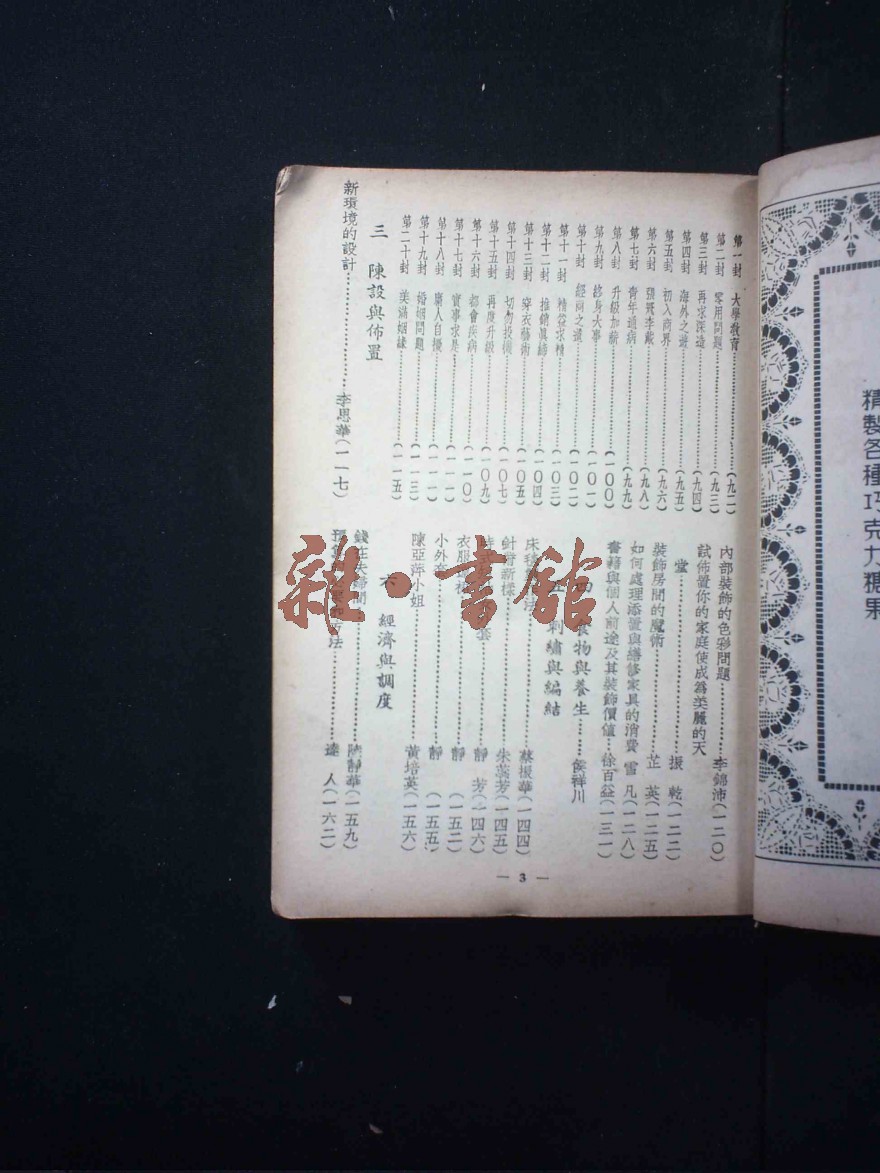 第一封 大學教育(九二)
第二封 零用問題(九三)
第三封 再求深造(九四)
第四封 海外之遊(九五)
第五封 初入商界(九六)
第六封 張冠李戴(九八)
第七封 青年通病(九九)
第八封 升級加薪(一〇〇)
第九封 終身大事(一〇一)
第十封 經商之道(一〇二)
第十一封 精益求精(一〇三)
第十二封 推銷真締(一〇四)
第十三封 穿衣藝術(一〇五)
第十四封 切勿投機(一〇七)
第十五封 再度升級(一〇九)
第十六封 都會疾病(一一〇)
第十七封 實事求是(一一一)
第十八封 庸人自擾(一一二)
第十九封 婚姻問題(一一三)
第二十封 美滿姻緣(一一五)
三 陳設與佈置
新環境的設計 李思華(一一七)
內部裝飾的色彩問題 李錦沛(一二〇)
試佈置你的家庭使成為美麗的天
堂 振 乾(一二二)
裝飾房間的魔術 芷 英(一二五)
如何處理添置與繕修家具的消費 雪 凡(一二八)
書籍與個人前途及其裝飾價值 徐百益(一三一)
四 食物與養生 侯祥川
五 刺繡與編結
床毯 法 蔡振華(一四四)
針 新樣 朱蕊芳(一四五)
套 靜 芳(一四六)
衣服 靜(一五二)
小外 靜(一五五)
陳亞萍小姐 黃培英(一五六)
六 經濟與調度
錢在夫婦間 陳靜華(一五九)
預 方法 達 人(一六二)
— 3 —
精製各種巧克力糖果
雜·書館